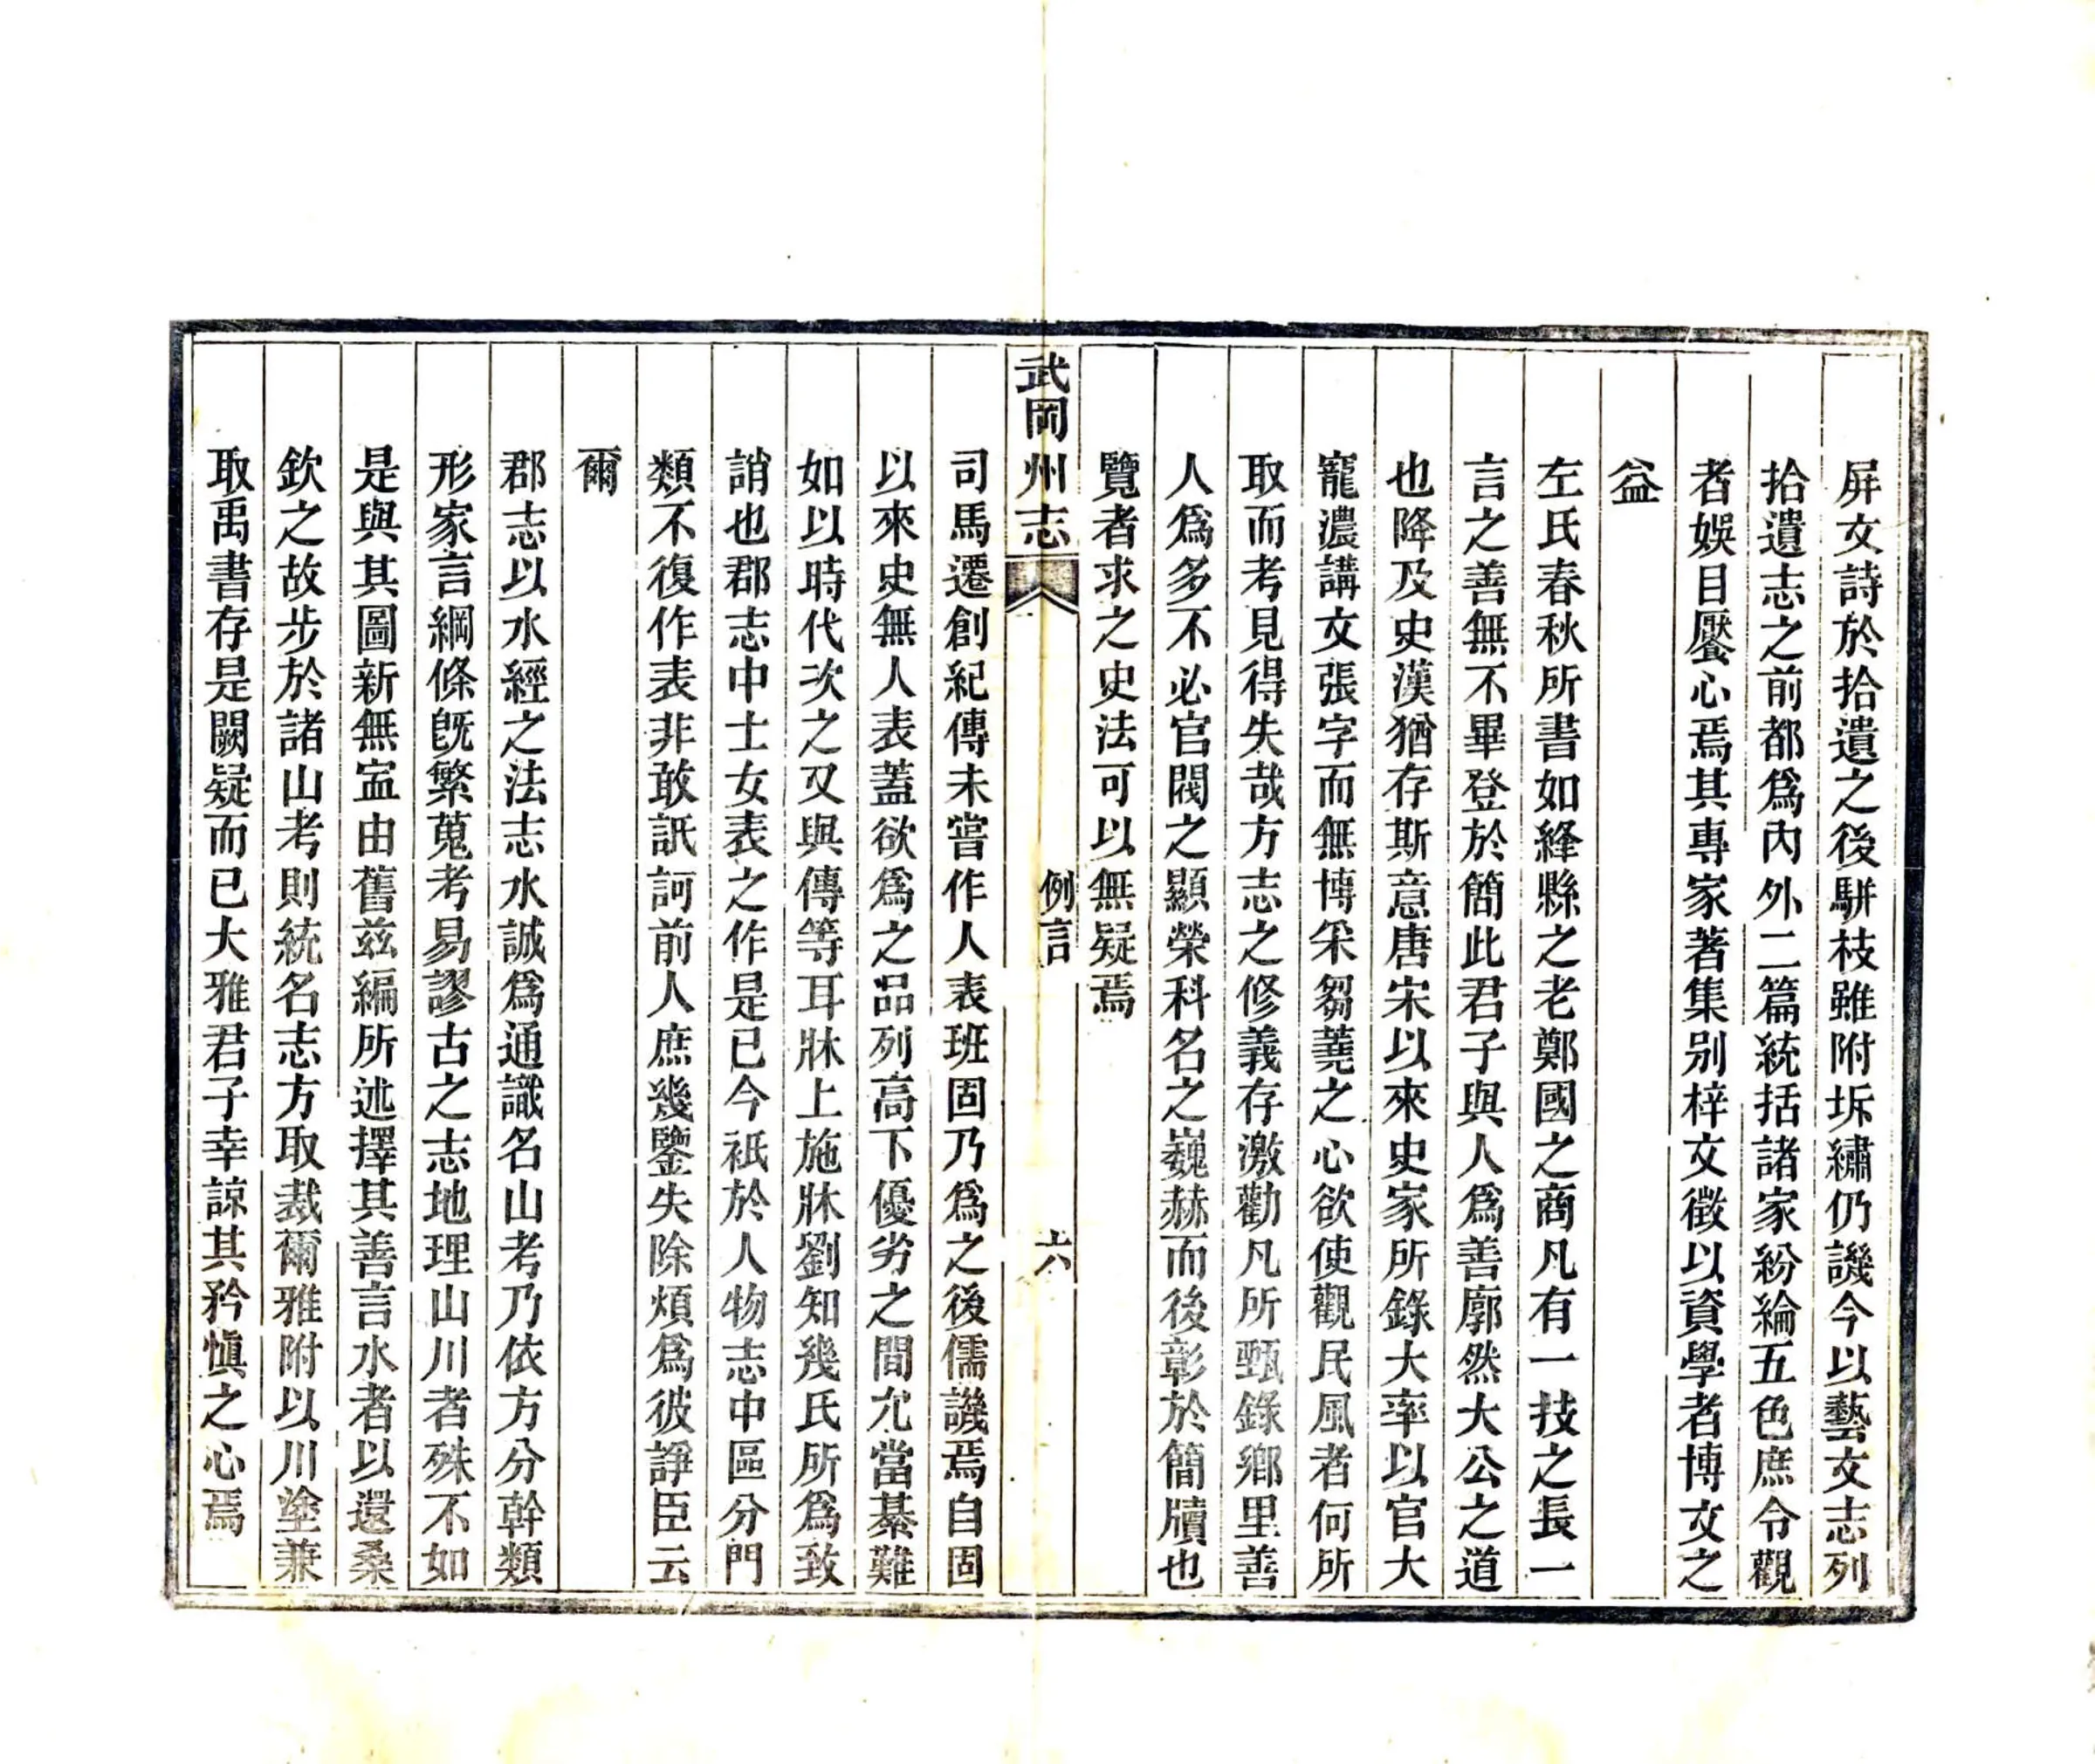 屏文詩於拾遺之後駢枝雖附坼繡仍譏今以藝文志列
拾遺志之前都爲內外二篇統括諸家紛綸五色庶令觀
者娛目饜心焉其專家著集别梓文徵以資學者博文之
益
左氏春秋所書如絳縣之老鄭國之商凡有一技之長一
言之善無不畢登於簡此君子與人爲善廓然大公之道
也降及史漢猶存斯意唐宋以來史家所錄大率以官大
寵濃講文張字而無博采芻蕘之心欲使觀民風者何所
取而考見得失哉方志之修義存激勸凡所甄錄鄉里善
人爲多不必官閥之顯榮科名之巍赫而後彰於簡牘也
覽者求之史法可以無疑焉
武岡州志
例言
六
司馬遷創紀傳未嘗作人表班固乃爲之後儒譏焉自固
以來史無人表蓋欲爲之品列高下優劣之間允當綦難
如以時代次之又與傳等耳牀上施牀劉知幾氏所爲致
誚也郡志中士女表之作是已今祇於人物志中區分門
類不復作表非敢詆訶前人庶幾鑒失除煩爲彼諍臣云
爾
郡志以水經之法志水誠爲通識名山考乃依方分幹類
形家言綱條旣繁蒐考易謬古之志地理山川者殊不如
是與其圖新無寍由舊茲編所述擇其善言水者以還桑
欽之故步於諸山考則統名志方取裁爾雅附以川塗兼
取禹書存是闕疑而已大雅君子幸諒其矜愼之心焉